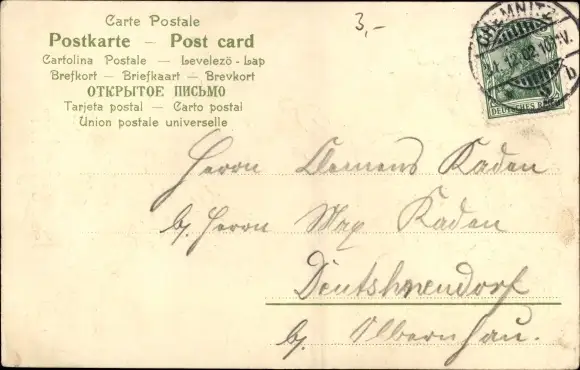 Carte Postale
Postkarte — Post card
Cartolina Postale — Levelező-Lap
Brefkort — Briefkaart — Brevkort
ОТКРЫТОЕ ПИСЬМО
Tarjeta postal — Carto postal
Union postale universelle
3,-
CHEMNITZ
4.12.02.10-11V.
b
DEUTSCHES REICH
Herrn Clemens Kaden
b/. Herrn Max Kaden
Deutschneudorf
b/. Olbernhau.